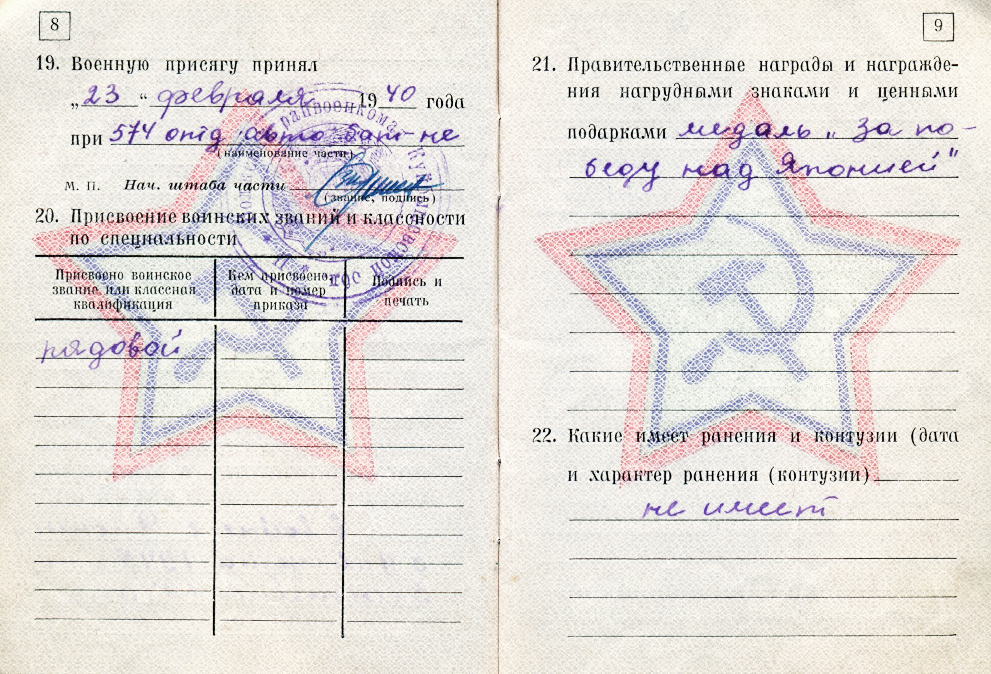 8
19. Военную присягу принял
„23“ февраля 1940 года
при 574 отд авто бат-не
(наименование части)
М. П. Нач. штаба части
(звание, подпись)
20. Присвоение воинских званий и классности
по специальности
Присвоено воинское
звание или классная
квалификация
Кем присвоено,
дата и номер
приказа
Подпись и
печать
рядовой
9
21. Правительственные награды и награжде-
ния нагрудными знаками и ценными
подарками медаль „За по-
беду над Японией"
22. Какие имеет ранения и контузии (дата
и характер ранения (контузии)
не имеет